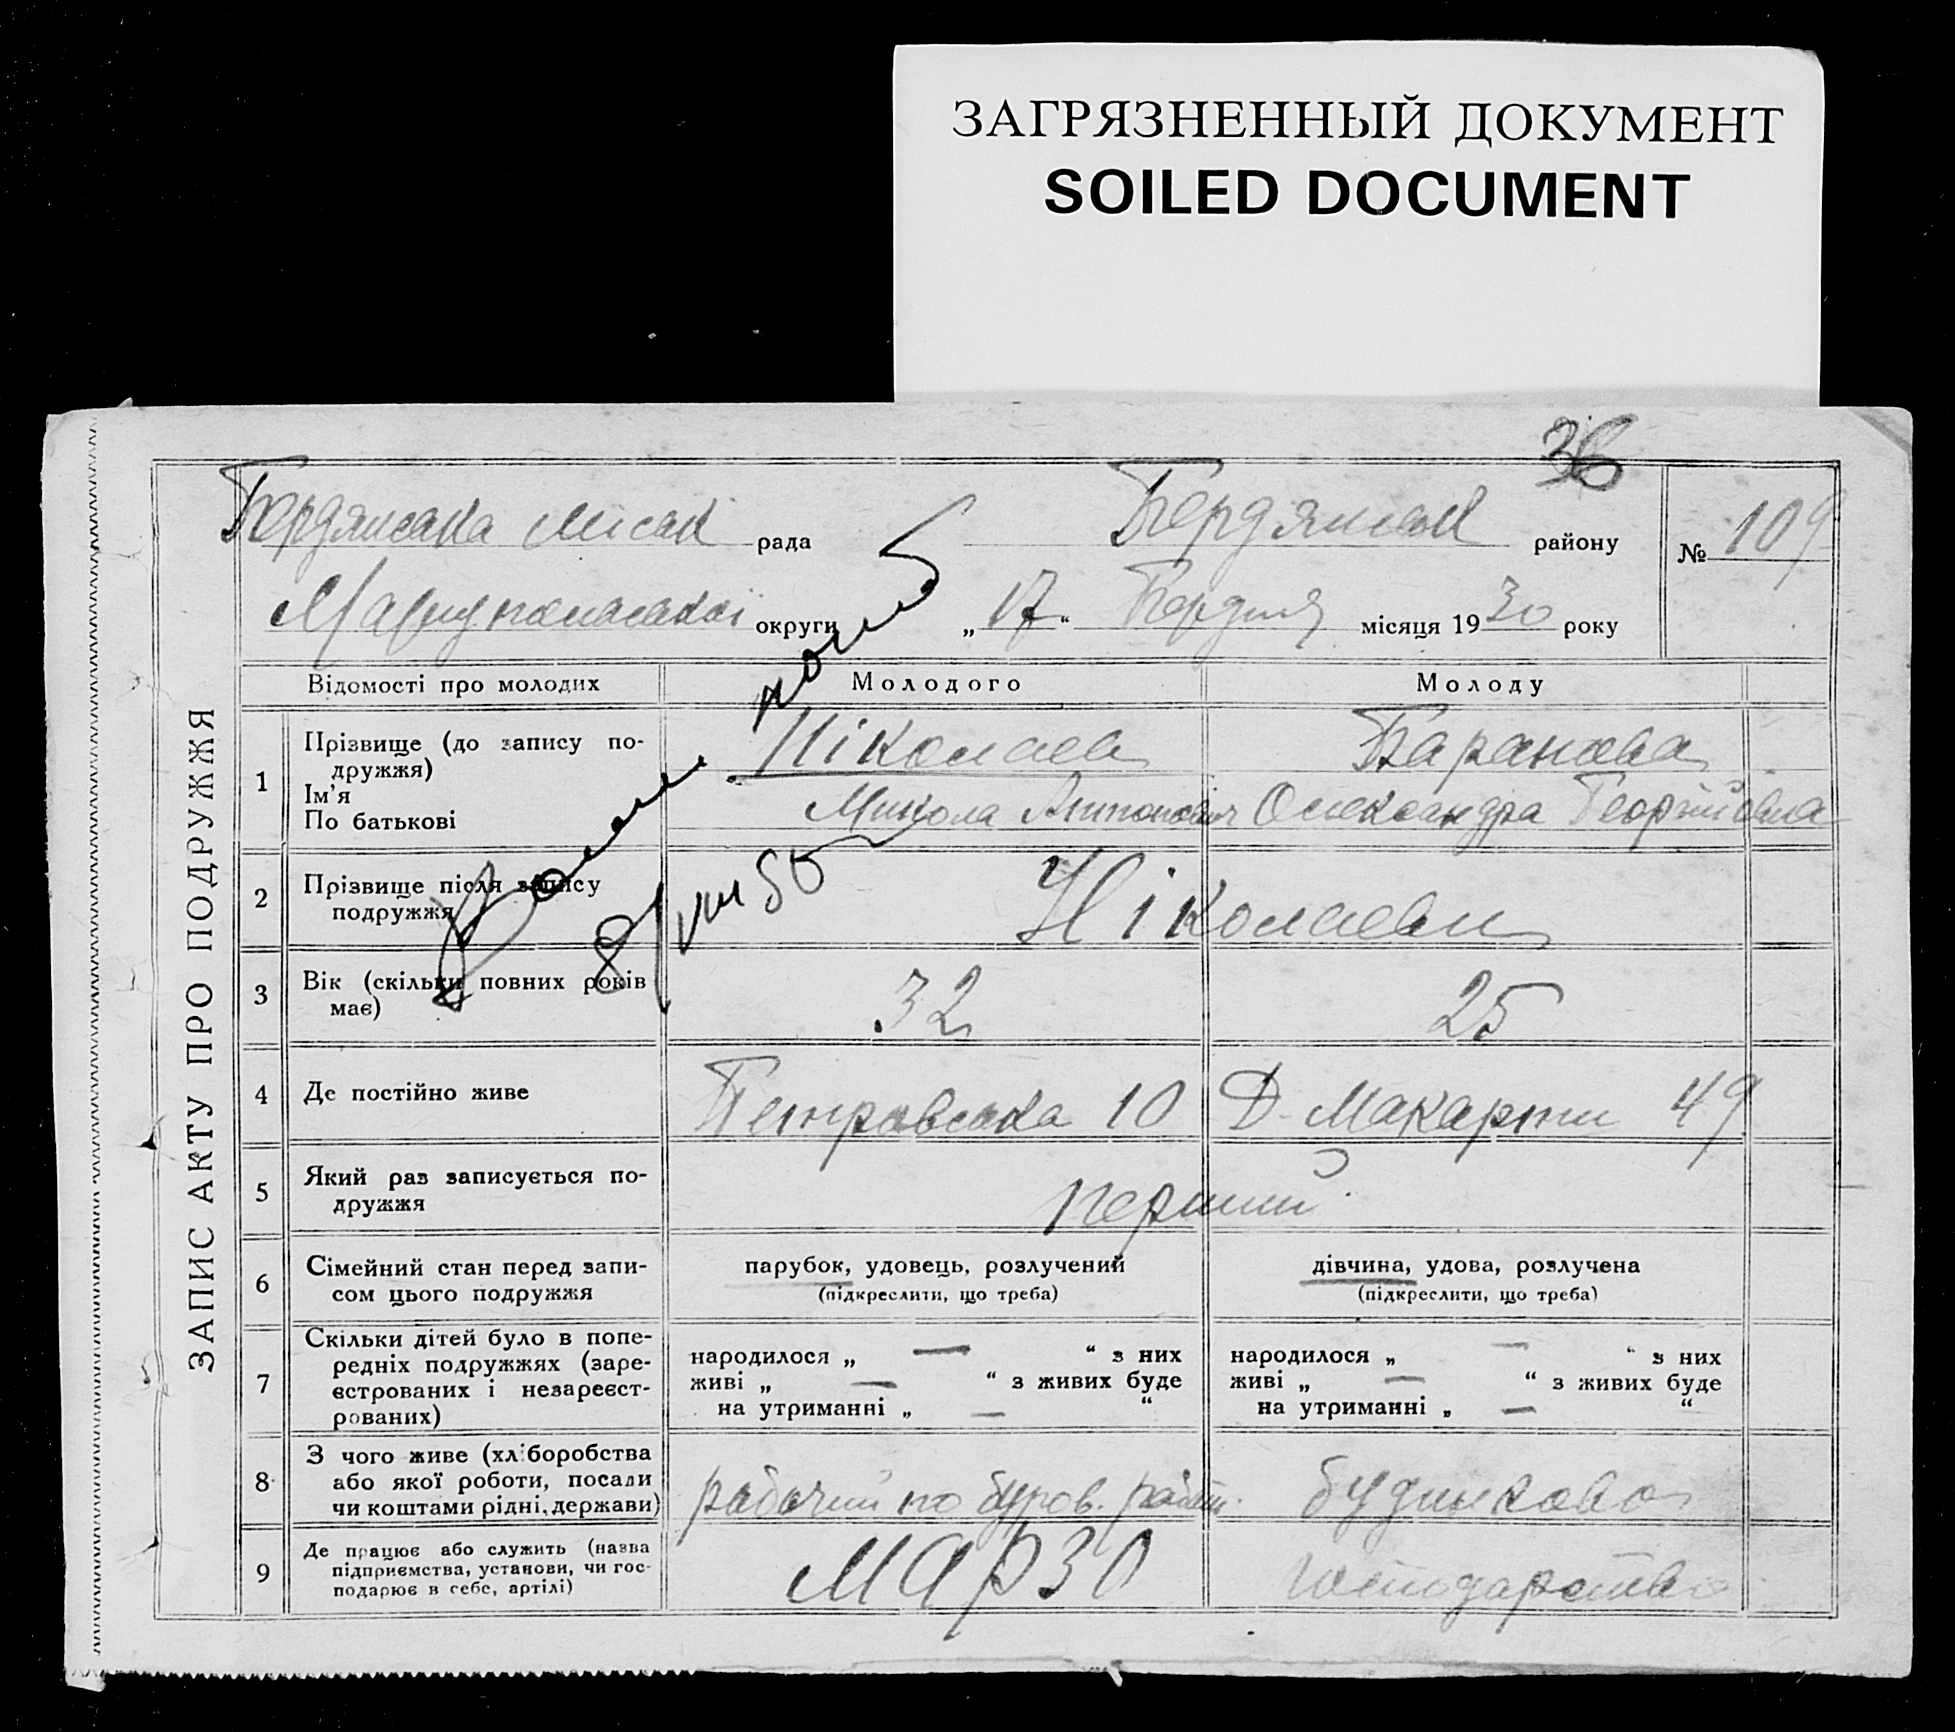 ЗАГРЯЗНЕННЫЙ ДОКУМЕНТ
SOILED DOCUMENT
36
ЗАПИС АКТУ ПРО ПОДРУЖЖЯ
Бердянська міськ рада Бердянськ району № 109
Маріупольської округи „17“ місяця 1930 року
Відомості про молодих Молодого Молоду
1 Прізвище (до запису по- Ніколаев Баранова
дружжя)
Ім'я Микола Антонович Олександра Георгіївна
По батькові
2 Прізвище після запису Ніколаєви
подружжя
8/VIII 56
3 Вік (скільки повних років 32 25
має)
4 Де постійно живе Петровська 10 Д. Макарти 49
5 Який раз записується по- перший
дружжя
6 Сімейний стан перед запи- парубок, удовець, розлучений дівчина, удова, розлучена
сом цього подружжя (підкреслити, що треба) (підкреслити, що треба)
7 Скільки дітей було в попе-
редніх подружжях (заре- народилося „ — “ з них народилося „ — “ з них
єстрованих і незареєст- живі „ — “ з живих буде живі „ — “ з живих буде
рованих) на утриманні „ — “ на утриманні „ — “
8 З чого живе (хліборобства
або якої роботи, посади рабочий по буров. работ. будинкова
чи коштами рідні, держави)
9 Де працює або служить (назва МАРЗО господарство
підприємства, установи, чи гос-
подарює в себе, артілі)